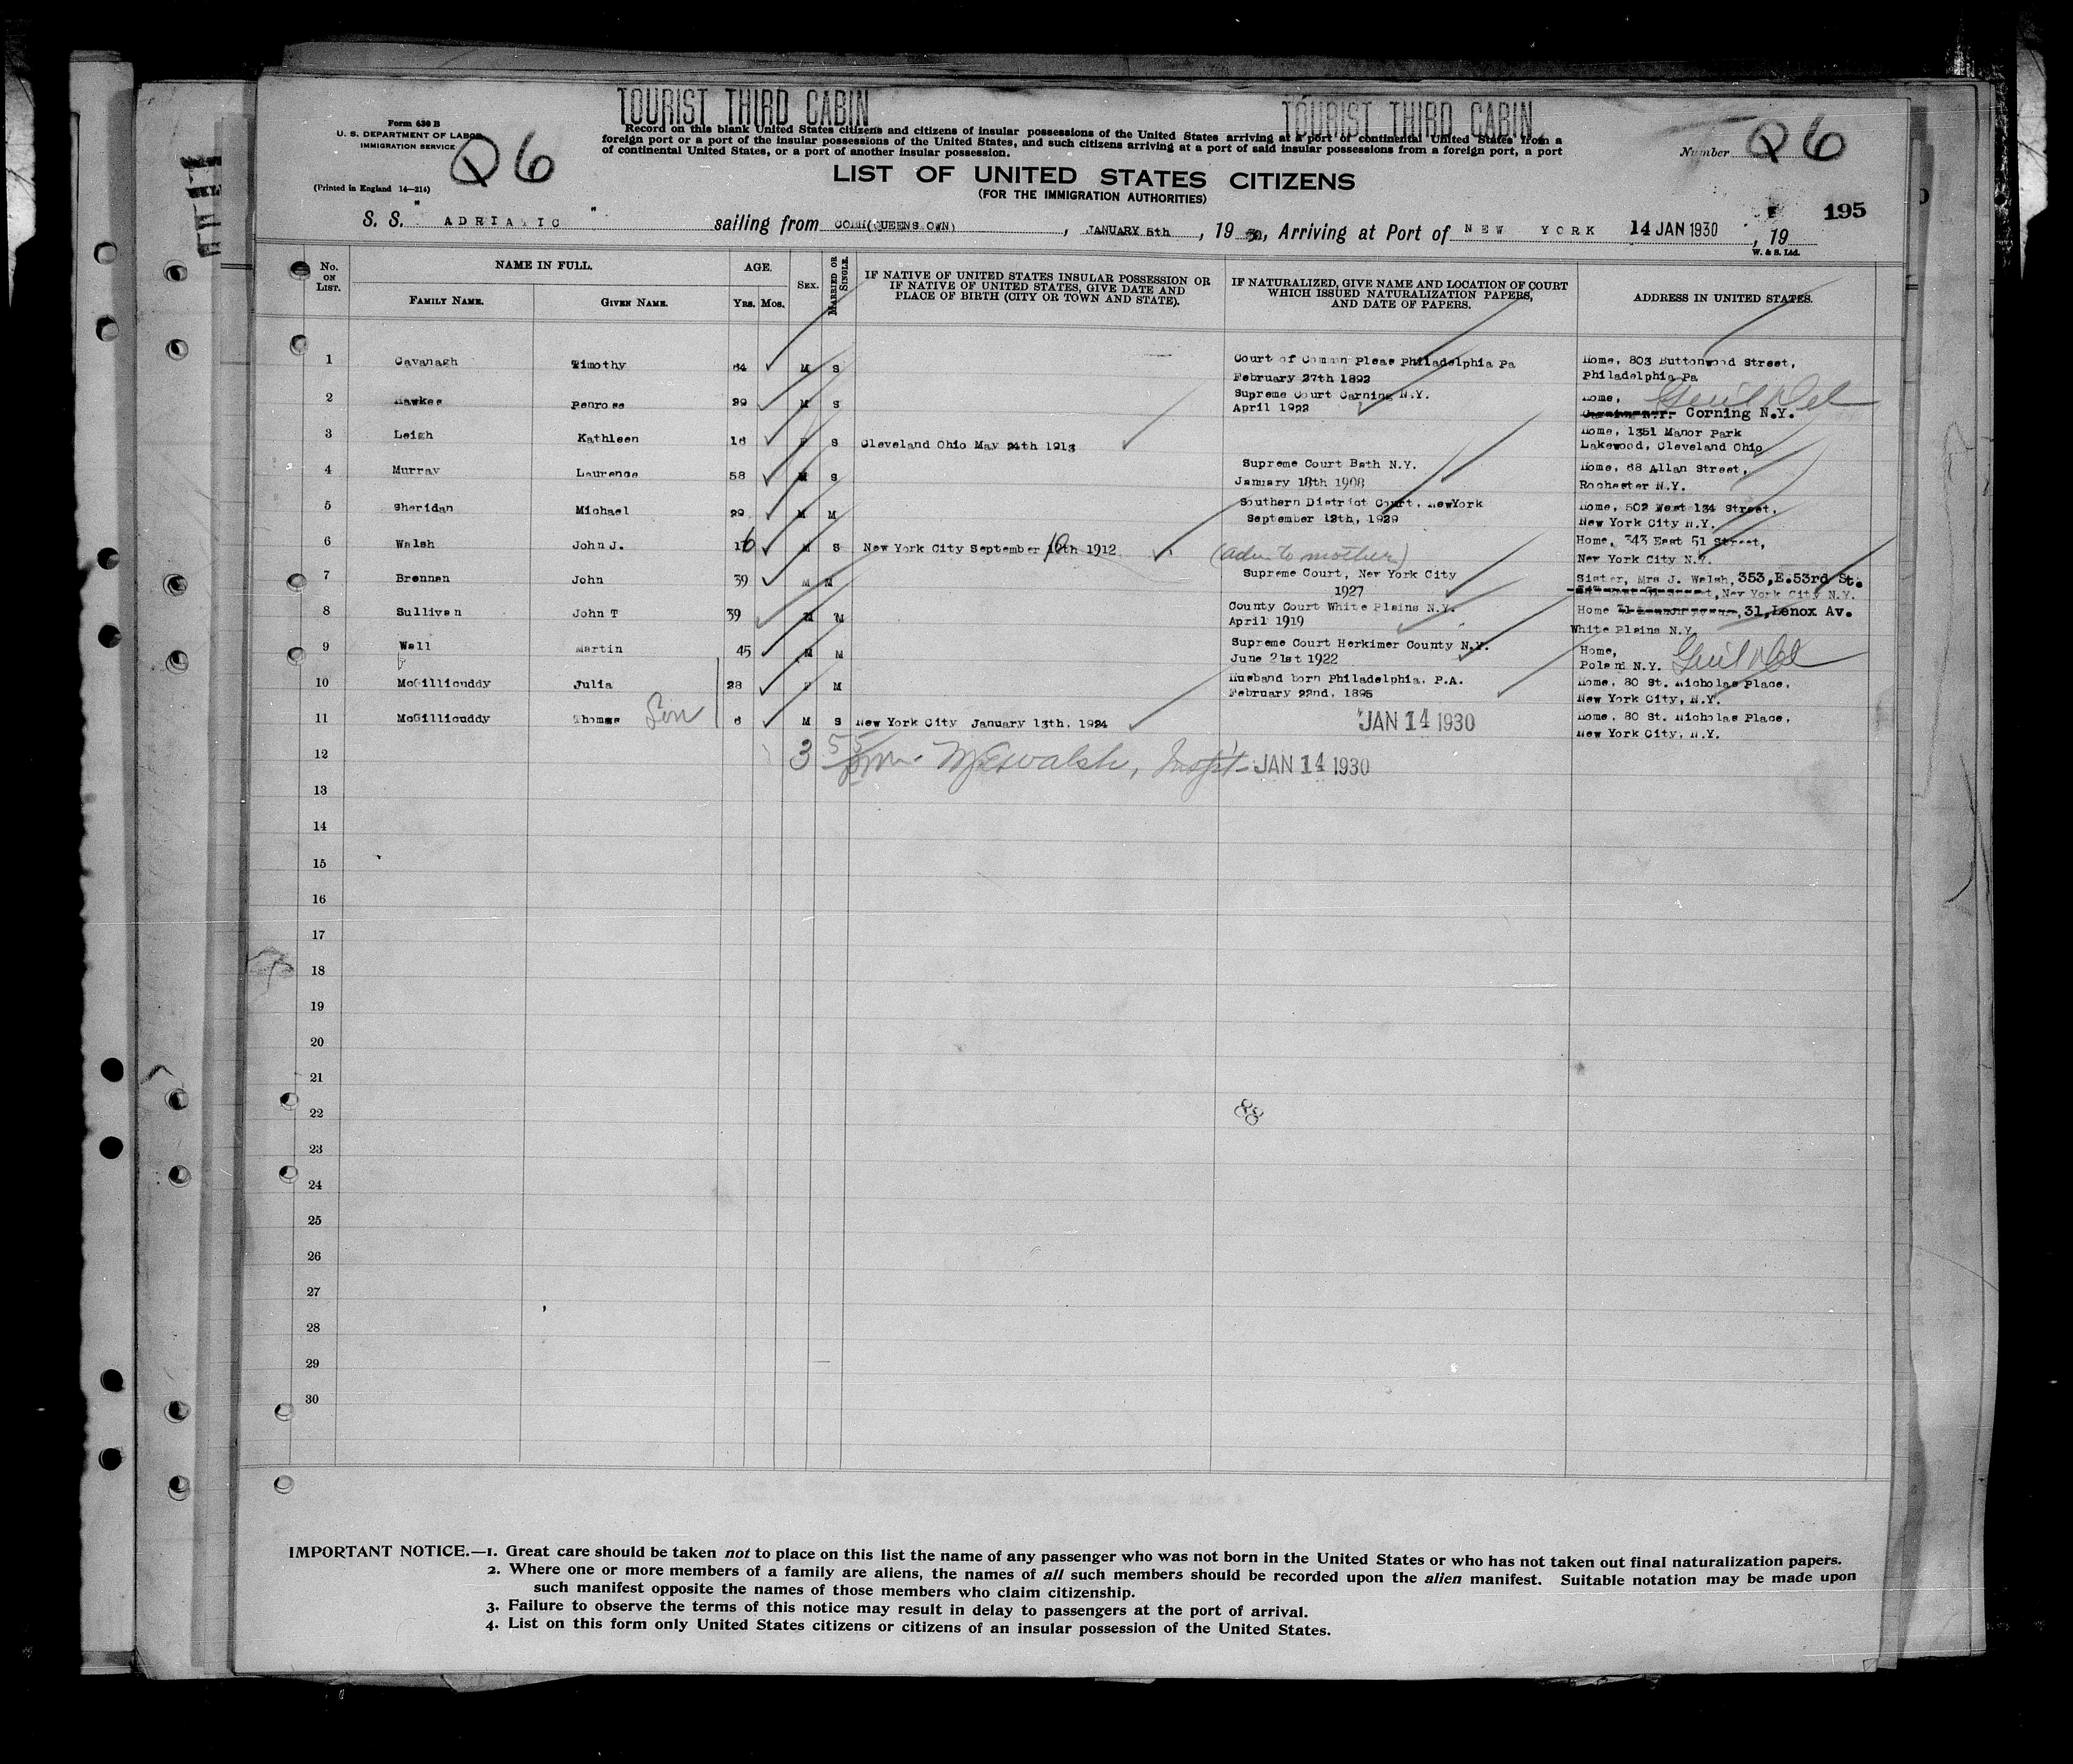 TOURIST THIRD CABIN TOURIST THIRD CABIN
Form 630 B
U. S. DEPARTMENT OF LABOR
IMMIGRATION SERVICE
Q6
(Printed in England 14—214)
Record on this blank United States citizens and citizens of insular possessions of the United States arriving at a port of continental United States from a
foreign port or a port of the insular possessions of the United States, and such citizens arriving at a port of said insular possessions from a foreign port, a port
of continental United States, or a port of another insular possession.
Number Q6
LIST OF UNITED STATES CITIZENS
(FOR THE IMMIGRATION AUTHORITIES)
195
S. S. " ADRIATIC " sailing from COBH(QUEENSTOWN), JANUARY 5th, 1930, Arriving at Port of NEW YORK 14 JAN 1930, 19
W. & S. Ltd.
No. ON LIST. NAME IN FULL. AGE. SEX. MARRIED OR SINGLE. IF NATIVE OF UNITED STATES INSULAR POSSESSION OR IF NATIVE OF UNITED STATES, GIVE DATE AND PLACE OF BIRTH (CITY OR TOWN AND STATE). IF NATURALIZED, GIVE NAME AND LOCATION OF COURT WHICH ISSUED NATURALIZATION PAPERS, AND DATE OF PAPERS. ADDRESS IN UNITED STATES.
FAMILY NAME. GIVEN NAME. YRS. MOS.
1 Cavanagh Timothy 64 M S Court of Common Pleas Philadelphia Pa Home, 803 Buttonwood Street,
February 27th 1892 Philadelphia Pa
2 Hawkes Penrose 29 M S Supreme Court Corning N.Y. Home,
April 1922 Corning N.Y.
3 Leigh Kathleen 16 F S Cleveland Ohio May 24th 1913 Home, 1351 Manor Park
Lakewood, Cleveland Ohio
4 Murray Laurence 58 M S Supreme Court Bath N.Y. Home, 68 Allan Street,
January 18th 1908 Rochester N.Y.
5 Sheridan Michael 29 M M Southern District Court, NewYork Home, 502 West 134 Street,
September 12th, 1929 New York City N.Y.
6 Walsh John J. 16 M S New York City September 10th 1912 (adm to mother) Home, 343 East 51 Street,
New York City N.Y.
7 Brennan John 39 M M Supreme Court, New York City Sister, Mrs J. Walsh, 353, E.53rd St.
1927 New York City N.Y.
8 Sullivan John T 39 M M County Court White Plains N.Y. Home 31, Lenox Av.
April 1919 White Plains N.Y.
9 Wall Martin 45 M M Supreme Court Herkimer County N.Y. Home,
June 21st 1922 Poland N.Y.
10 McGillicuddy Julia 28 F M Husband born Philadelphia. P.A. Home, 80 St. Nicholas Place,
February 22nd, 1895 New York City, N.Y.
11 McGillicuddy Thomas Son 6 M S New York City January 13th, 1924 JAN 14 1930 Home, 80 St. Nicholas Place,
New York City, N.Y.
12 JAN 14 1930
13
14
15
16
17
18
19
20
21
22
23
24
25
26
27
28
29
30
IMPORTANT NOTICE.—1. Great care should be taken not to place on this list the name of any passenger who was not born in the United States or who has not taken out final naturalization papers.
2. Where one or more members of a family are aliens, the names of all such members should be recorded upon the alien manifest. Suitable notation may be made upon
such manifest opposite the names of those members who claim citizenship.
3. Failure to observe the terms of this notice may result in delay to passengers at the port of arrival.
4. List on this form only United States citizens or citizens of an insular possession of the United States.